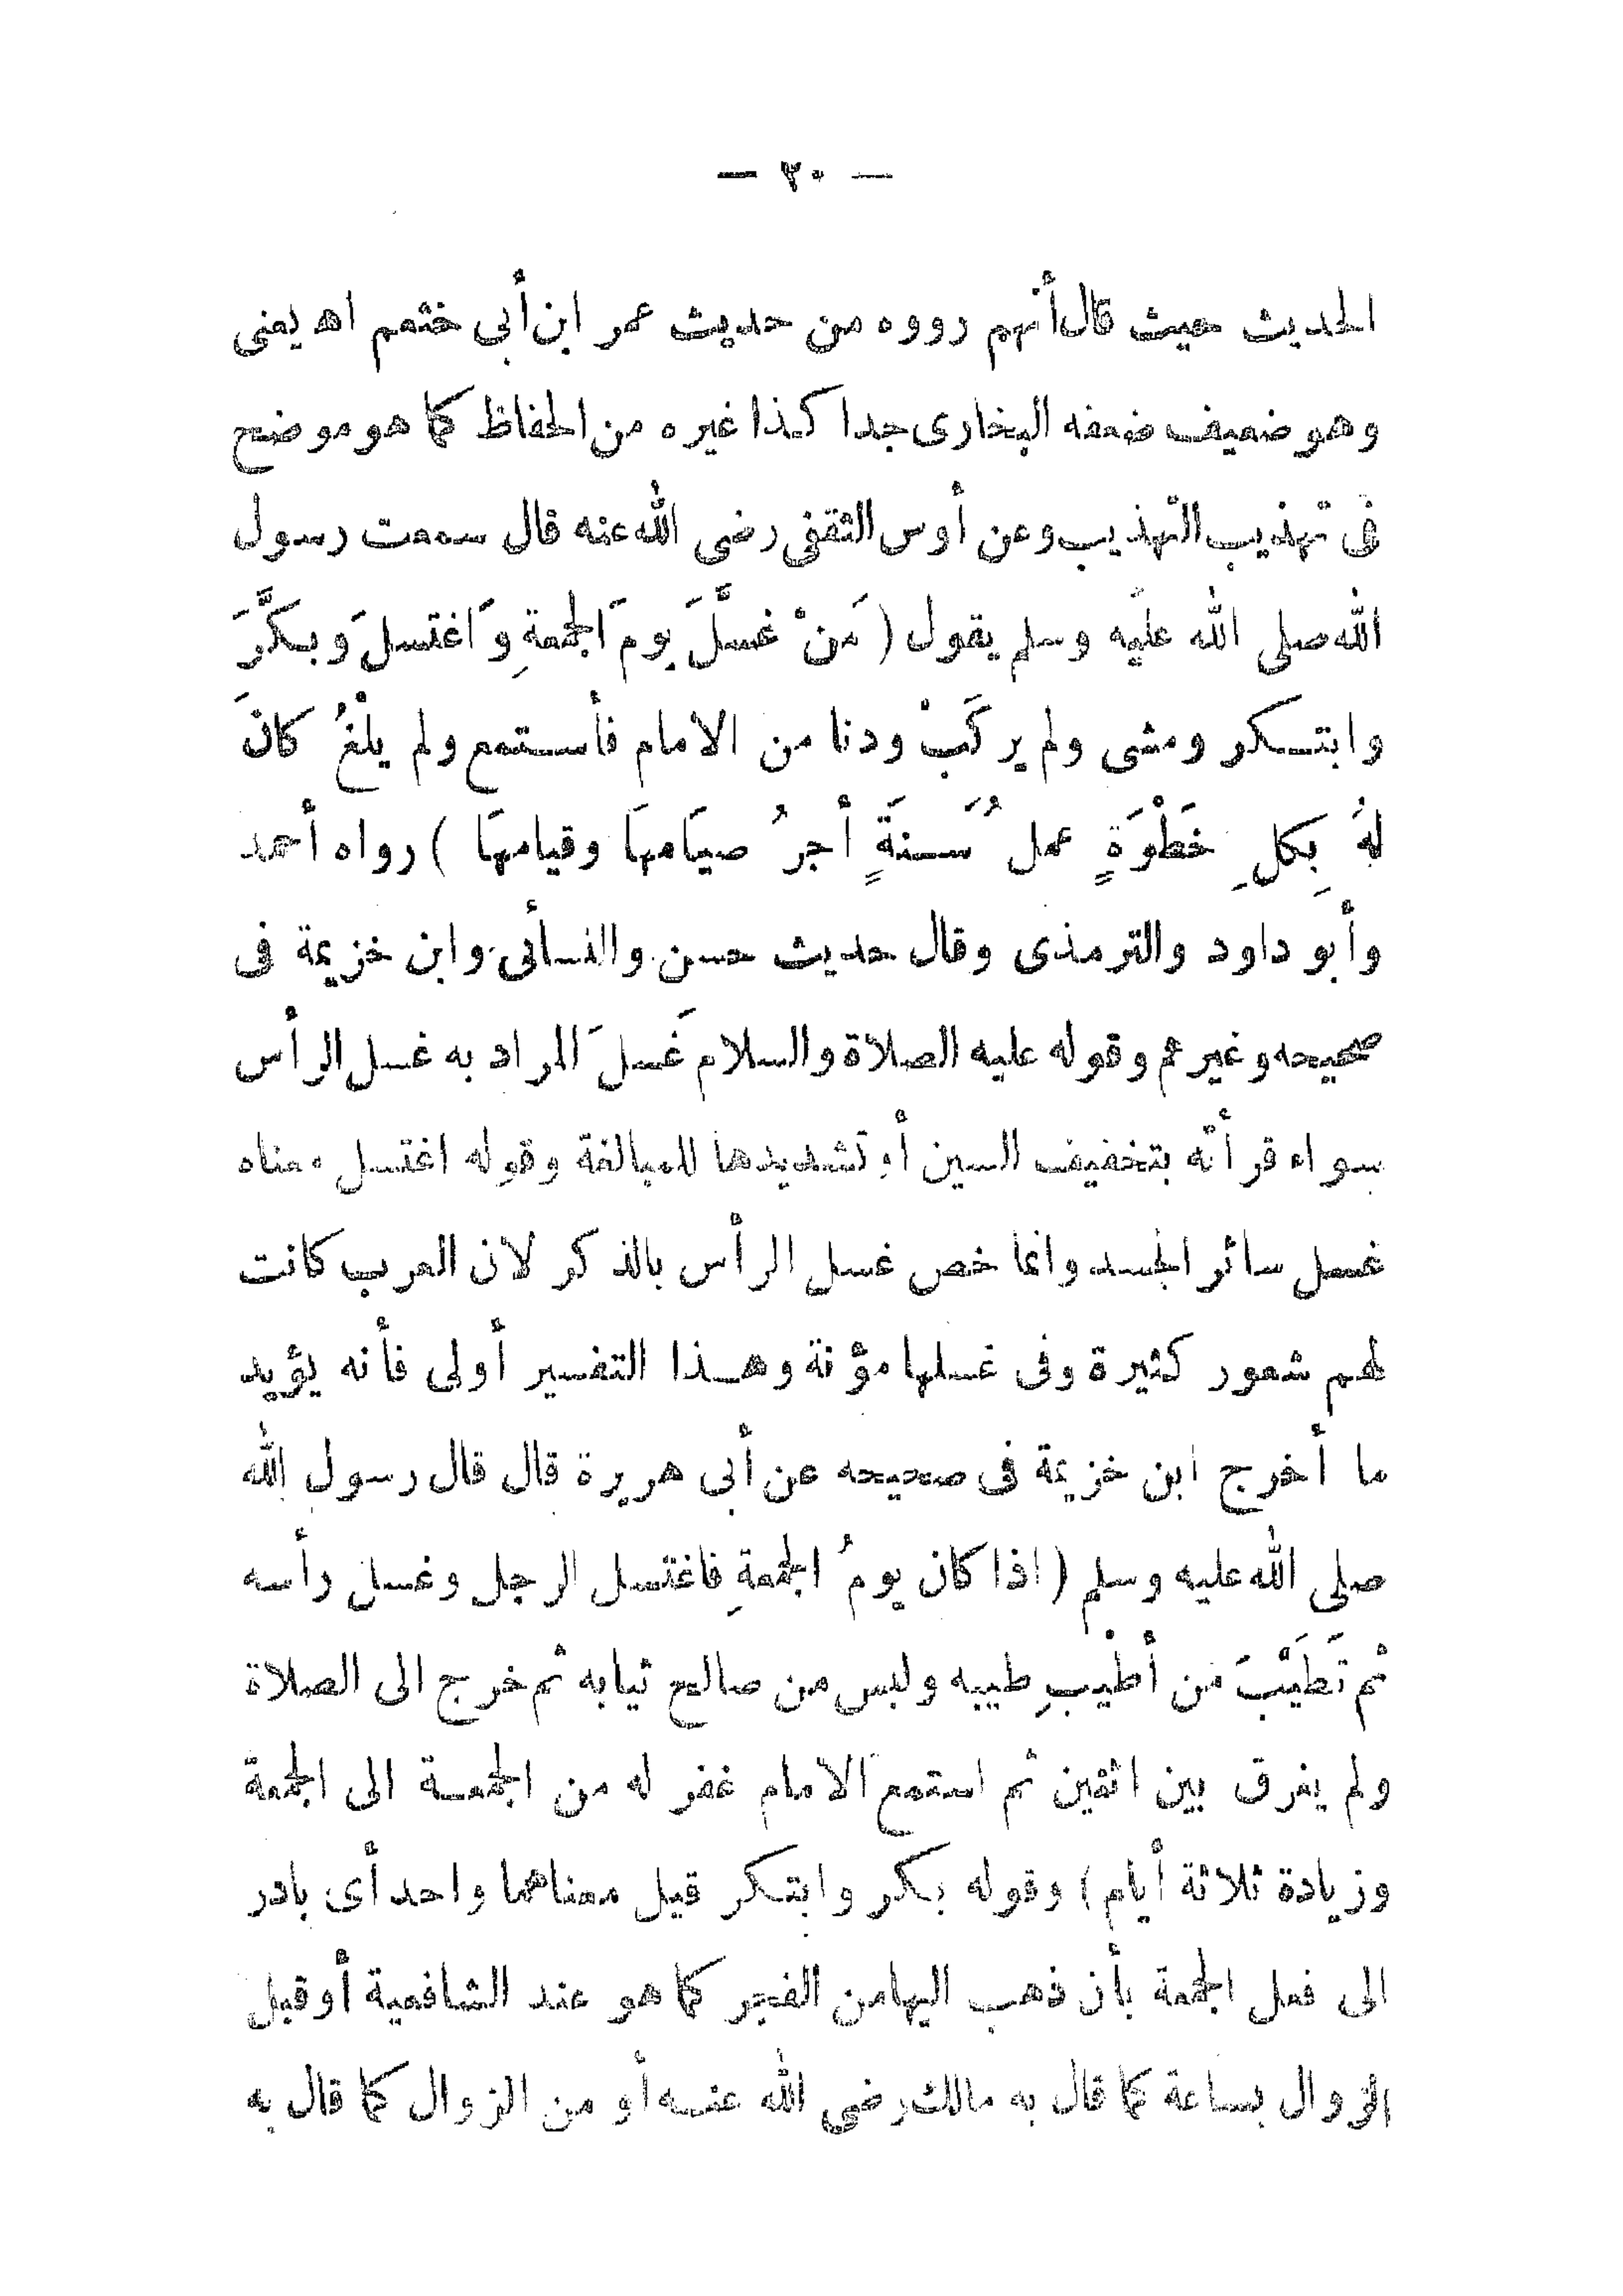 — ٣٠ —
الحديث حيث قال أنهم رووه من حديث عمر ابن أبى ختعم اه يعنى
وهو ضعيف ضعفه البخارى جدا كذا غيره من الحفاظ كما هو موضح
فى تهذيب التهذيب وعن أوس الثقفى رضى الله عنه قال سمعت رسول
الله صلى الله عليه وسلم يقول ( مَنْ غسَّلَ يومَ الجمعةِ وَاغتسلَ وبكَّرَ
وابتكر ومشى ولم يركَبْ ودنا من الامام فأستمع ولم يلْغُ كانَ
لهُ بِكلِ خَطْوَةٍ عملُ سَنةٍ أجرُ صيَامهَا وقيامهَا ) رواه أحمد
وأبو داود والترمذى وقال حديث حسن والنسائى وابن خزيمة فى
صحيحه وغيرهم وقوله عليه الصلاة والسلام غَسلَ المراد به غسل الرأس
سواء قرأته بتخفيف السين أو تشديدها للمبالغة وقوله اغتسل معناه
غسل سائر الجسد وانما خص غسل الرأس بالذكر لان العرب كانت
لهم شعور كثيرة وفى غسلها مؤنة وهذا التفسير أولى فأنه يؤيد
ما أخرج ابن خزيمة فى صحيحه عن أبى هريرة قال قال رسول الله
صلى الله عليه وسلم ( اذا كان يومُ الجمعةِ فاغتسل الرجل وغسل رأسه
ثم تَطَيَّبَ من أطْيبِ طيبه ولبس من صالح ثيابه ثم خرج الى الصلاة
ولم يفرق بين اثنين ثم استمع الامام غفر له من الجمعة الى الجمعة
وزيادة ثلاثة أيام ) وقوله بكر وابتكر قيل معناهما واحد أى بادر
الى فعل الجمعة بأن ذهب اليها من الفجر كما هو عند الشافعية أو قبل
الزوال بساعة كما قال به مالك رضى الله عنه أو من الزوال كما قال به